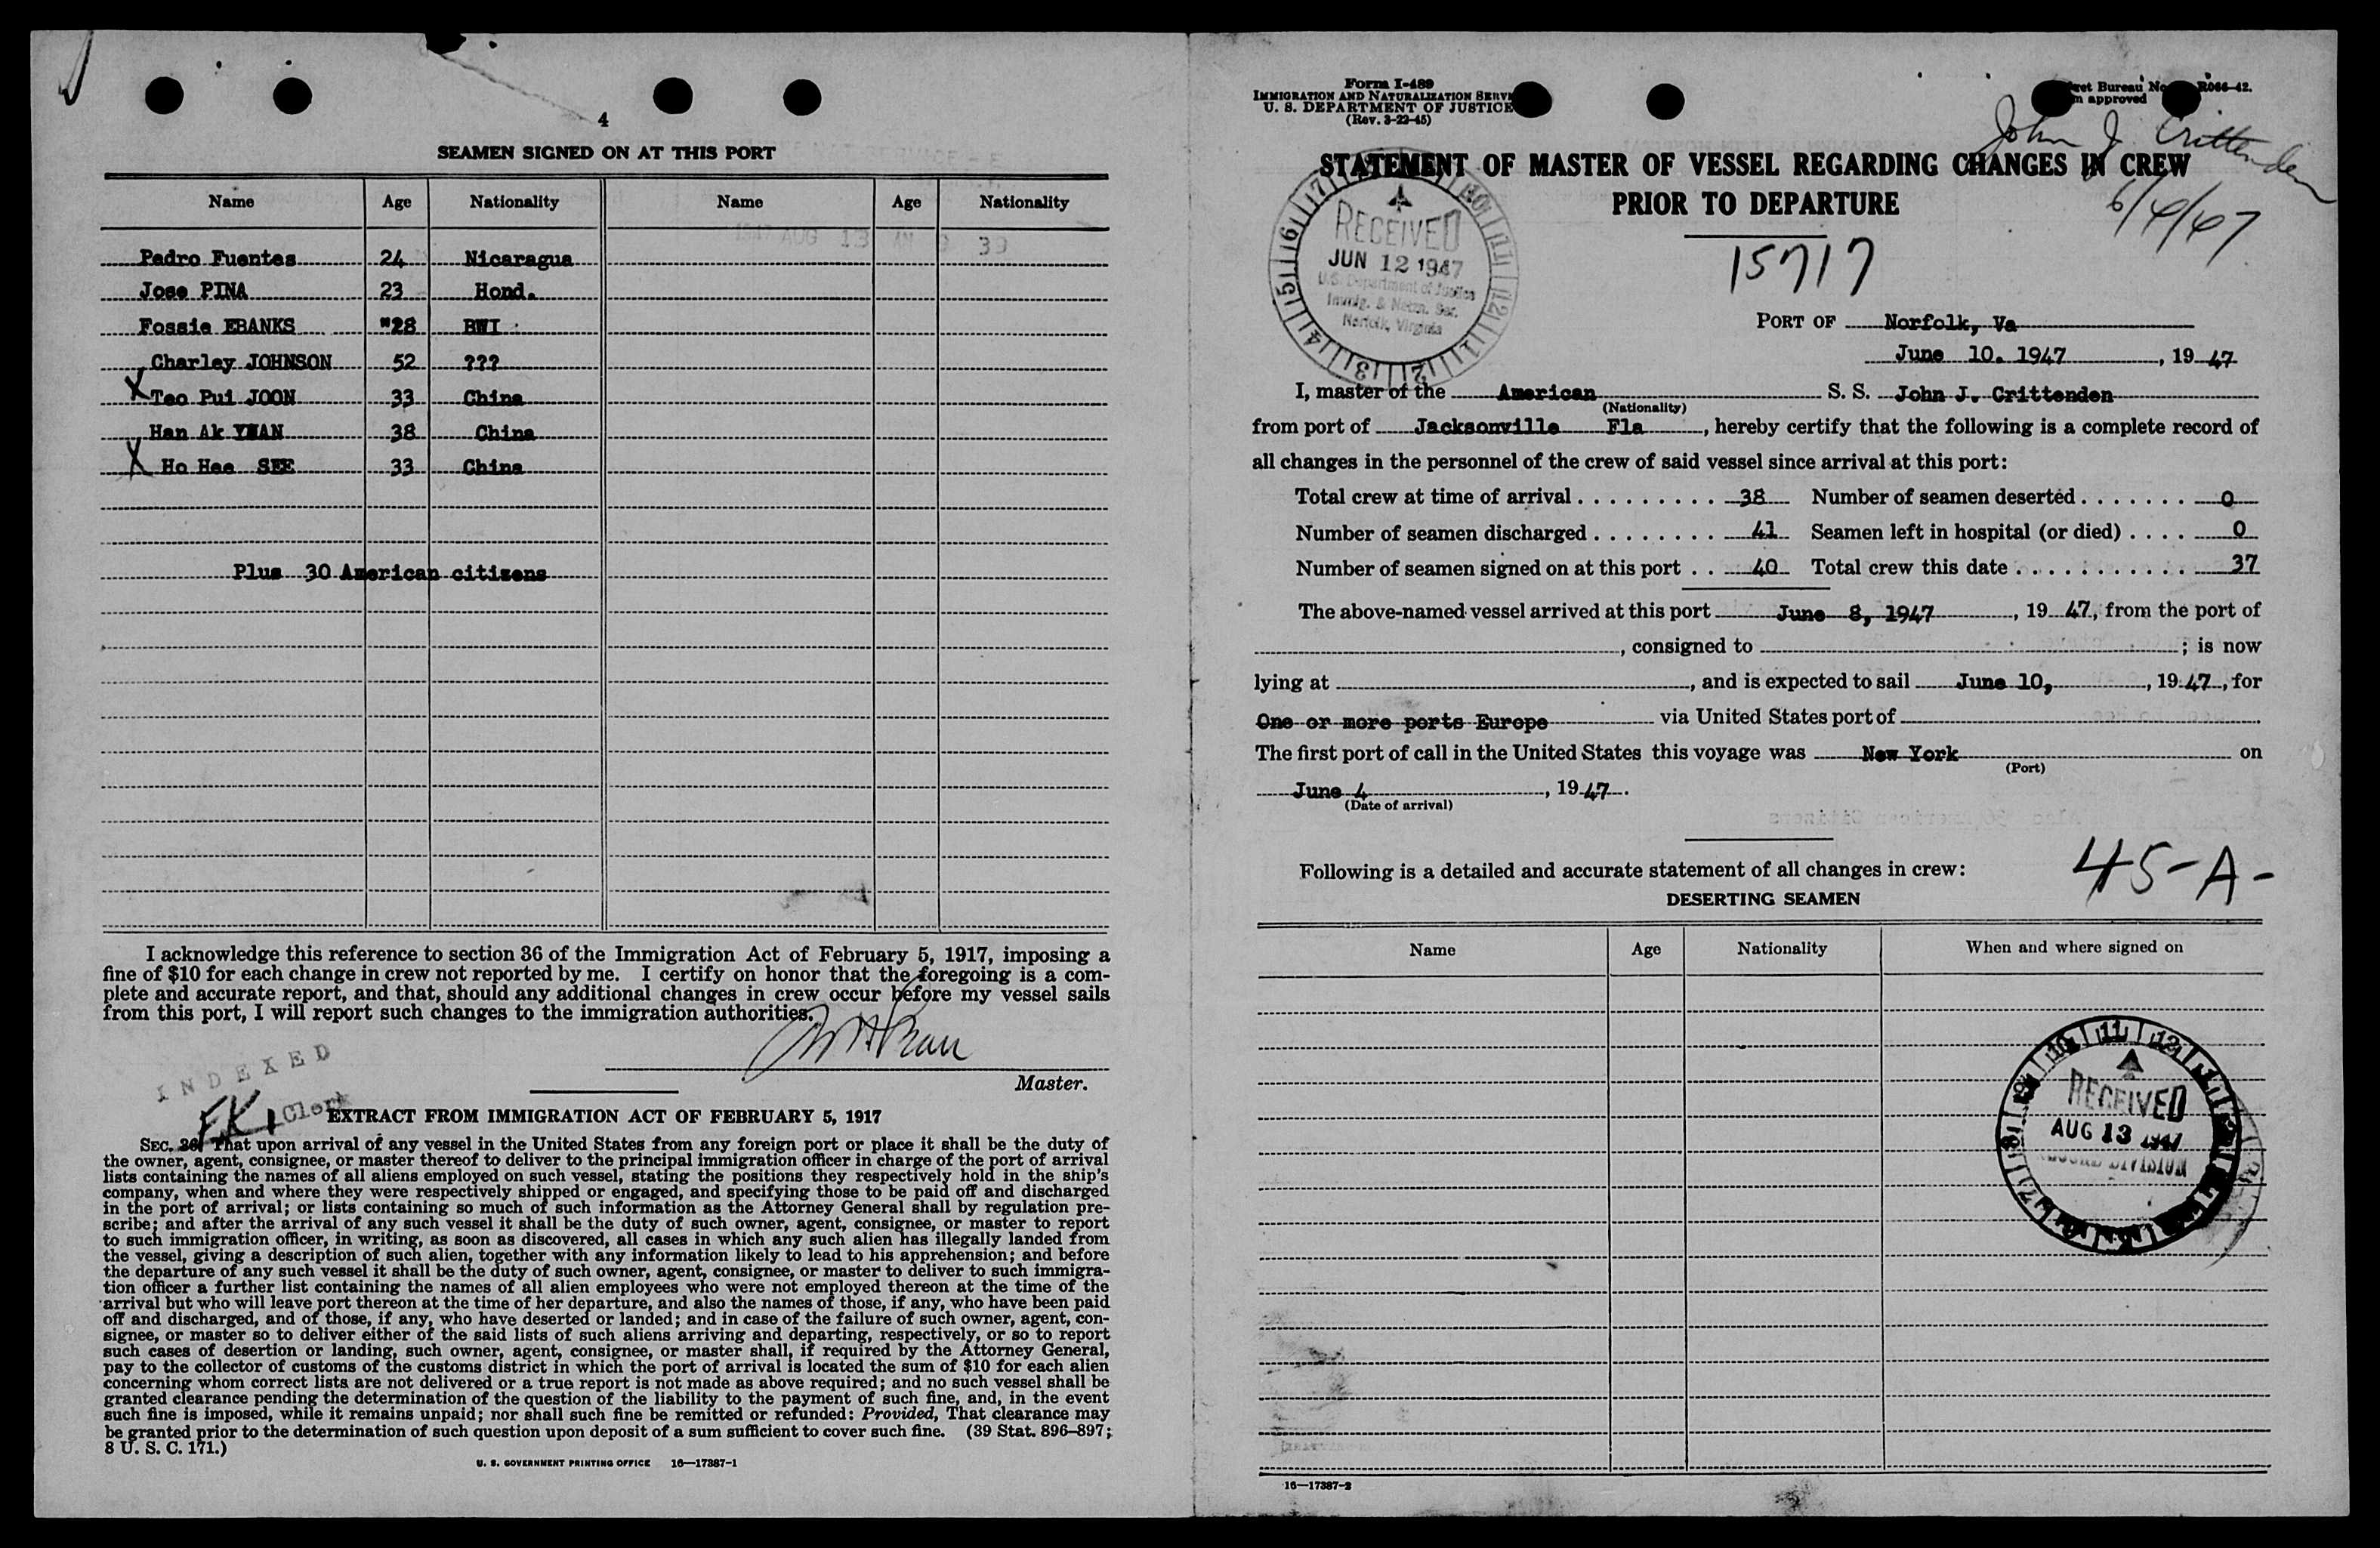 4
SEAMEN SIGNED ON AT THIS PORT
Name Age Nationality Name Age Nationality
1947 AUG 13 AM 9 39
Pedro Fuentes 24 Nicaragua
Jose PINA 23 Hond.
Fossie EBANKS "28 BWI
Charley JOHNSON 52 ???
X Teo Pui JOON 33 China
Han Ak YUAN 38 China
X Ho Hee SEE 33 China
Plus 30 American citizens
I acknowledge this reference to section 36 of the Immigration Act of February 5, 1917, imposing a
fine of $10 for each change in crew not reported by me. I certify on honor that the foregoing is a com-
plete and accurate report, and that, should any additional changes in crew occur before my vessel sails
from this port, I will report such changes to the immigration authorities.
Master.
INDEXED
Clerk
EXTRACT FROM IMMIGRATION ACT OF FEBRUARY 5, 1917
SEC. 36. That upon arrival of any vessel in the United States from any foreign port or place it shall be the duty of
the owner, agent, consignee, or master thereof to deliver to the principal immigration officer in charge of the port of arrival
lists containing the names of all aliens employed on such vessel, stating the positions they respectively hold in the ship's
company, when and where they were respectively shipped or engaged, and specifying those to be paid off and discharged
in the port of arrival; or lists containing so much of such information as the Attorney General shall by regulation pre-
scribe; and after the arrival of any such vessel it shall be the duty of such owner, agent, consignee, or master to report
to such immigration officer, in writing, as soon as discovered, all cases in which any such alien has illegally landed from
the vessel, giving a description of such alien, together with any information likely to lead to his apprehension; and before
the departure of any such vessel it shall be the duty of such owner, agent, consignee, or master to deliver to such immigra-
tion officer a further list containing the names of all alien employees who were not employed thereon at the time of the
arrival but who will leave port thereon at the time of her departure, and also the names of those, if any, who have been paid
off and discharged, and of those, if any, who have deserted or landed; and in case of the failure of such owner, agent, con-
signee, or master so to deliver either of the said lists of such aliens arriving and departing, respectively, or so to report
such cases of desertion or landing, such owner, agent, consignee, or master shall, if required by the Attorney General,
pay to the collector of customs of the customs district in which the port of arrival is located the sum of $10 for each alien
concerning whom correct lists are not delivered or a true report is not made as above required; and no such vessel shall be
granted clearance pending the determination of the question of the liability to the payment of such fine, and, in the event
such fine is imposed, while it remains unpaid; nor shall such fine be remitted or refunded: Provided, That clearance may
be granted prior to the determination of such question upon deposit of a sum sufficient to cover such fine. (39 Stat. 896–897;
8 U. S. C. 171.)
U. S. GOVERNMENT PRINTING OFFICE 16—17387-1
Form I-489
IMMIGRATION AND NATURALIZATION
U. S. DEPARTMENT OF JUSTICE
(Rev. 3-22-45)
Bureau No. R066-42.
approved
John J Crittenden
6/4/47
STATEMENT OF MASTER OF VESSEL REGARDING CHANGES IN CREW
PRIOR TO DEPARTURE
15717
RECEIVED
JUN 12 1947
U.S. Department of Justice
Immig. & Natzn. Ser.
Norfolk, Virginia
PORT OF Norfolk, Va
June 10. 1947, 19 47
I, master of the American S. S. John J. Crittenden
(Nationality)
from port of Jacksonville Fla, hereby certify that the following is a complete record of
all changes in the personnel of the crew of said vessel since arrival at this port:
Total crew at time of arrival . . . . . . . . . 38 Number of seamen deserted . . . . . . . 0
Number of seamen discharged . . . . . . . . 41 Seamen left in hospital (or died) . . . . 0
Number of seamen signed on at this port . . 40 Total crew this date . . . . . . . . . . . 37
The above-named vessel arrived at this port June 8, 1947, 19 47, from the port of
, consigned to ; is now
lying at , and is expected to sail June 10, , 19 47, for
One or more ports Europe via United States port of
The first port of call in the United States this voyage was New York on
(Port)
June 4, 19 47.
(Date of arrival)
Following is a detailed and accurate statement of all changes in crew:
45-A-
DESERTING SEAMEN
Name Age Nationality When and where signed on
RECEIVED
AUG 13 1947
RECORD DIVISION
16—17387-2